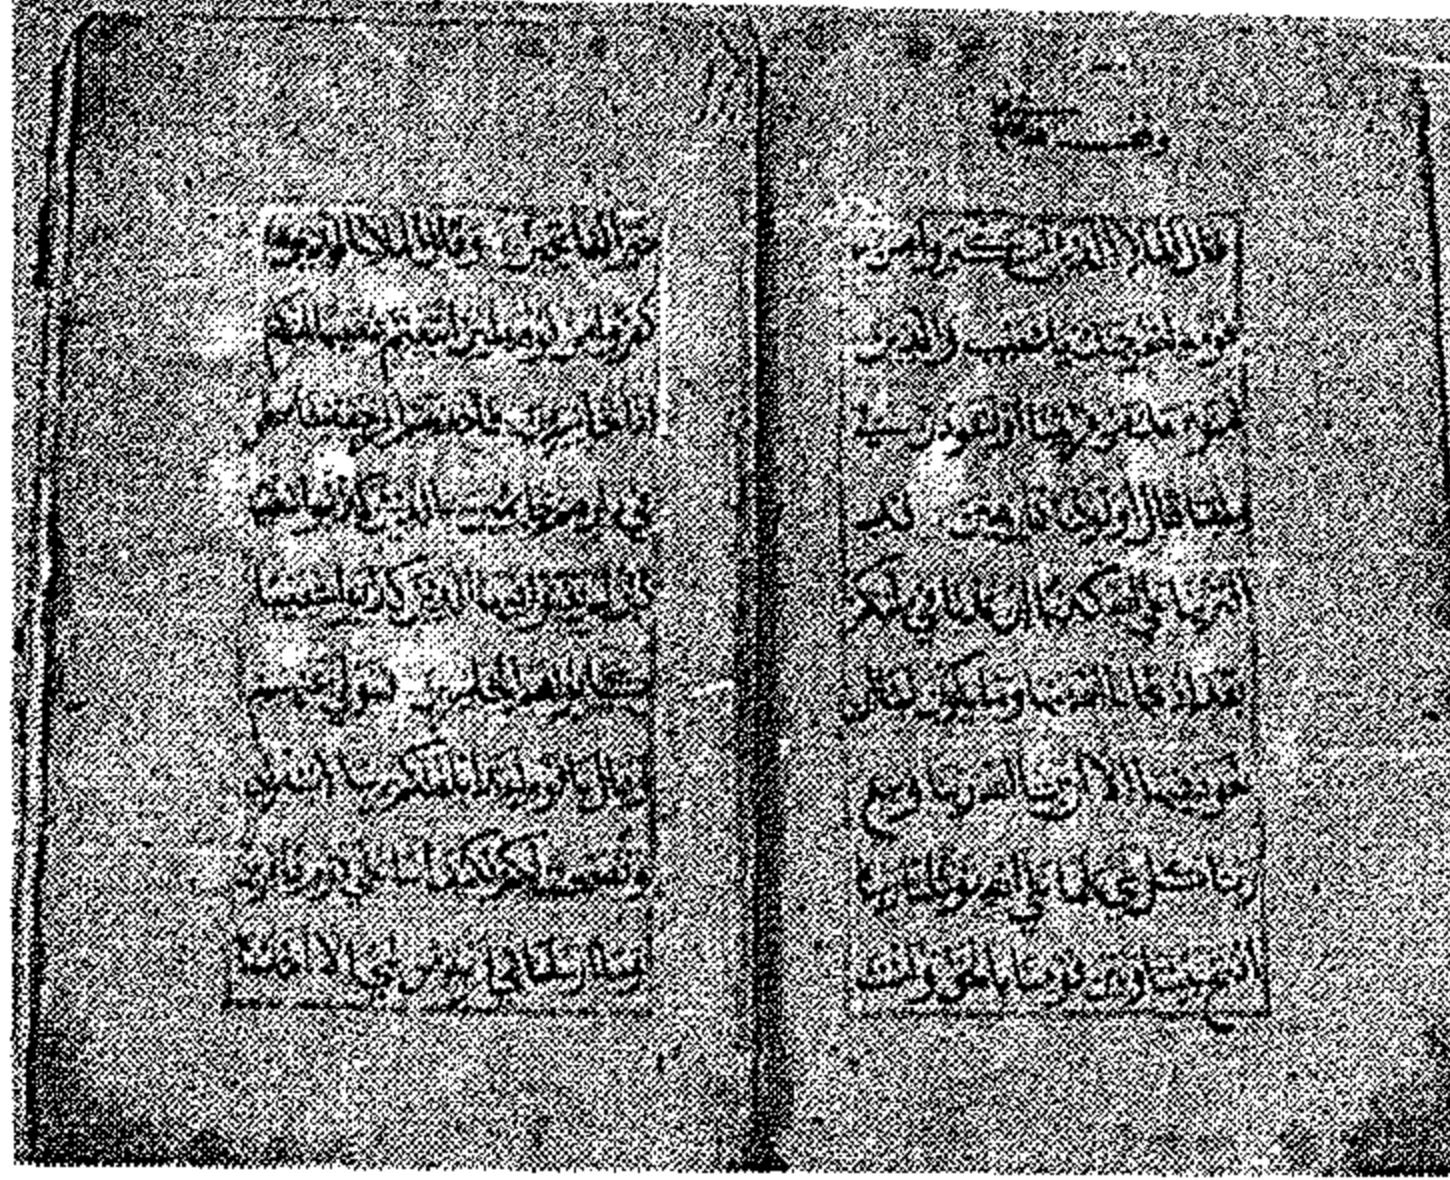 قال الملا الذين استكبروا من
قومه لنخرجنك يا شعيب والذين
امنوا معك من قريتنا او لتعودن في
ملتنا قال اولو كنا كارهين قد
افترينا على الله كذبا ان عدنا في ملتكم
بعد اذ نجانا الله منها وما يكون لنا ان
نعود فيها الا ان يشا الله ربنا وسع
ربنا كل شي علما على الله توكلنا ربنا
افتح بيننا وبين قومنا بالحق وانت
خير الفاتحين وقال الملا الذين
كفروا من قومه لئن اتبعتم شعيبا انكم
اذا لخاسرون فاخذتهم الرجفة فاصبحوا
في دارهم جاثمين الذين كذبوا شعيبا
كان لم يغنوا فيها الذين كذبوا شعيبا
كانوا هم الخاسرين فتولى عنهم
وقال يا قوم لقد ابلغتكم رسالات ربي
ونصحت لكم فكيف اسى على قوم كافرين
وما ارسلنا في قرية من نبي الا اخذنا